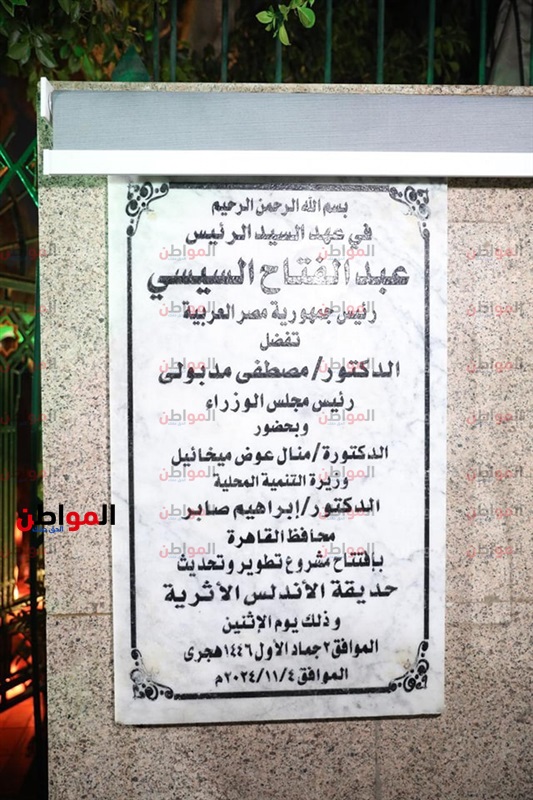 بسم الله الرحمن الرحيم
في عهد السيد الرئيس
عبد الفتاح السيسي
رئيس جمهورية مصر العربية
تفضل
الدكتور/ مصطفى مدبولى
رئيس مجلس الوزراء
وبحضور
الدكتورة/ منال عوض ميخائيل
وزيرة التنمية المحلية
الدكتور/ إبراهيم صابر
محافظ القاهرة
بإفتتاح مشروع تطوير وتحديث
حديقة الأندلس الأثرية
وذلك يوم الإثنين
الموافق ٢ جماد الأول ١٤٤٦ هجرى
الموافق ٢٠٢٤/١١/٤م
المواطن